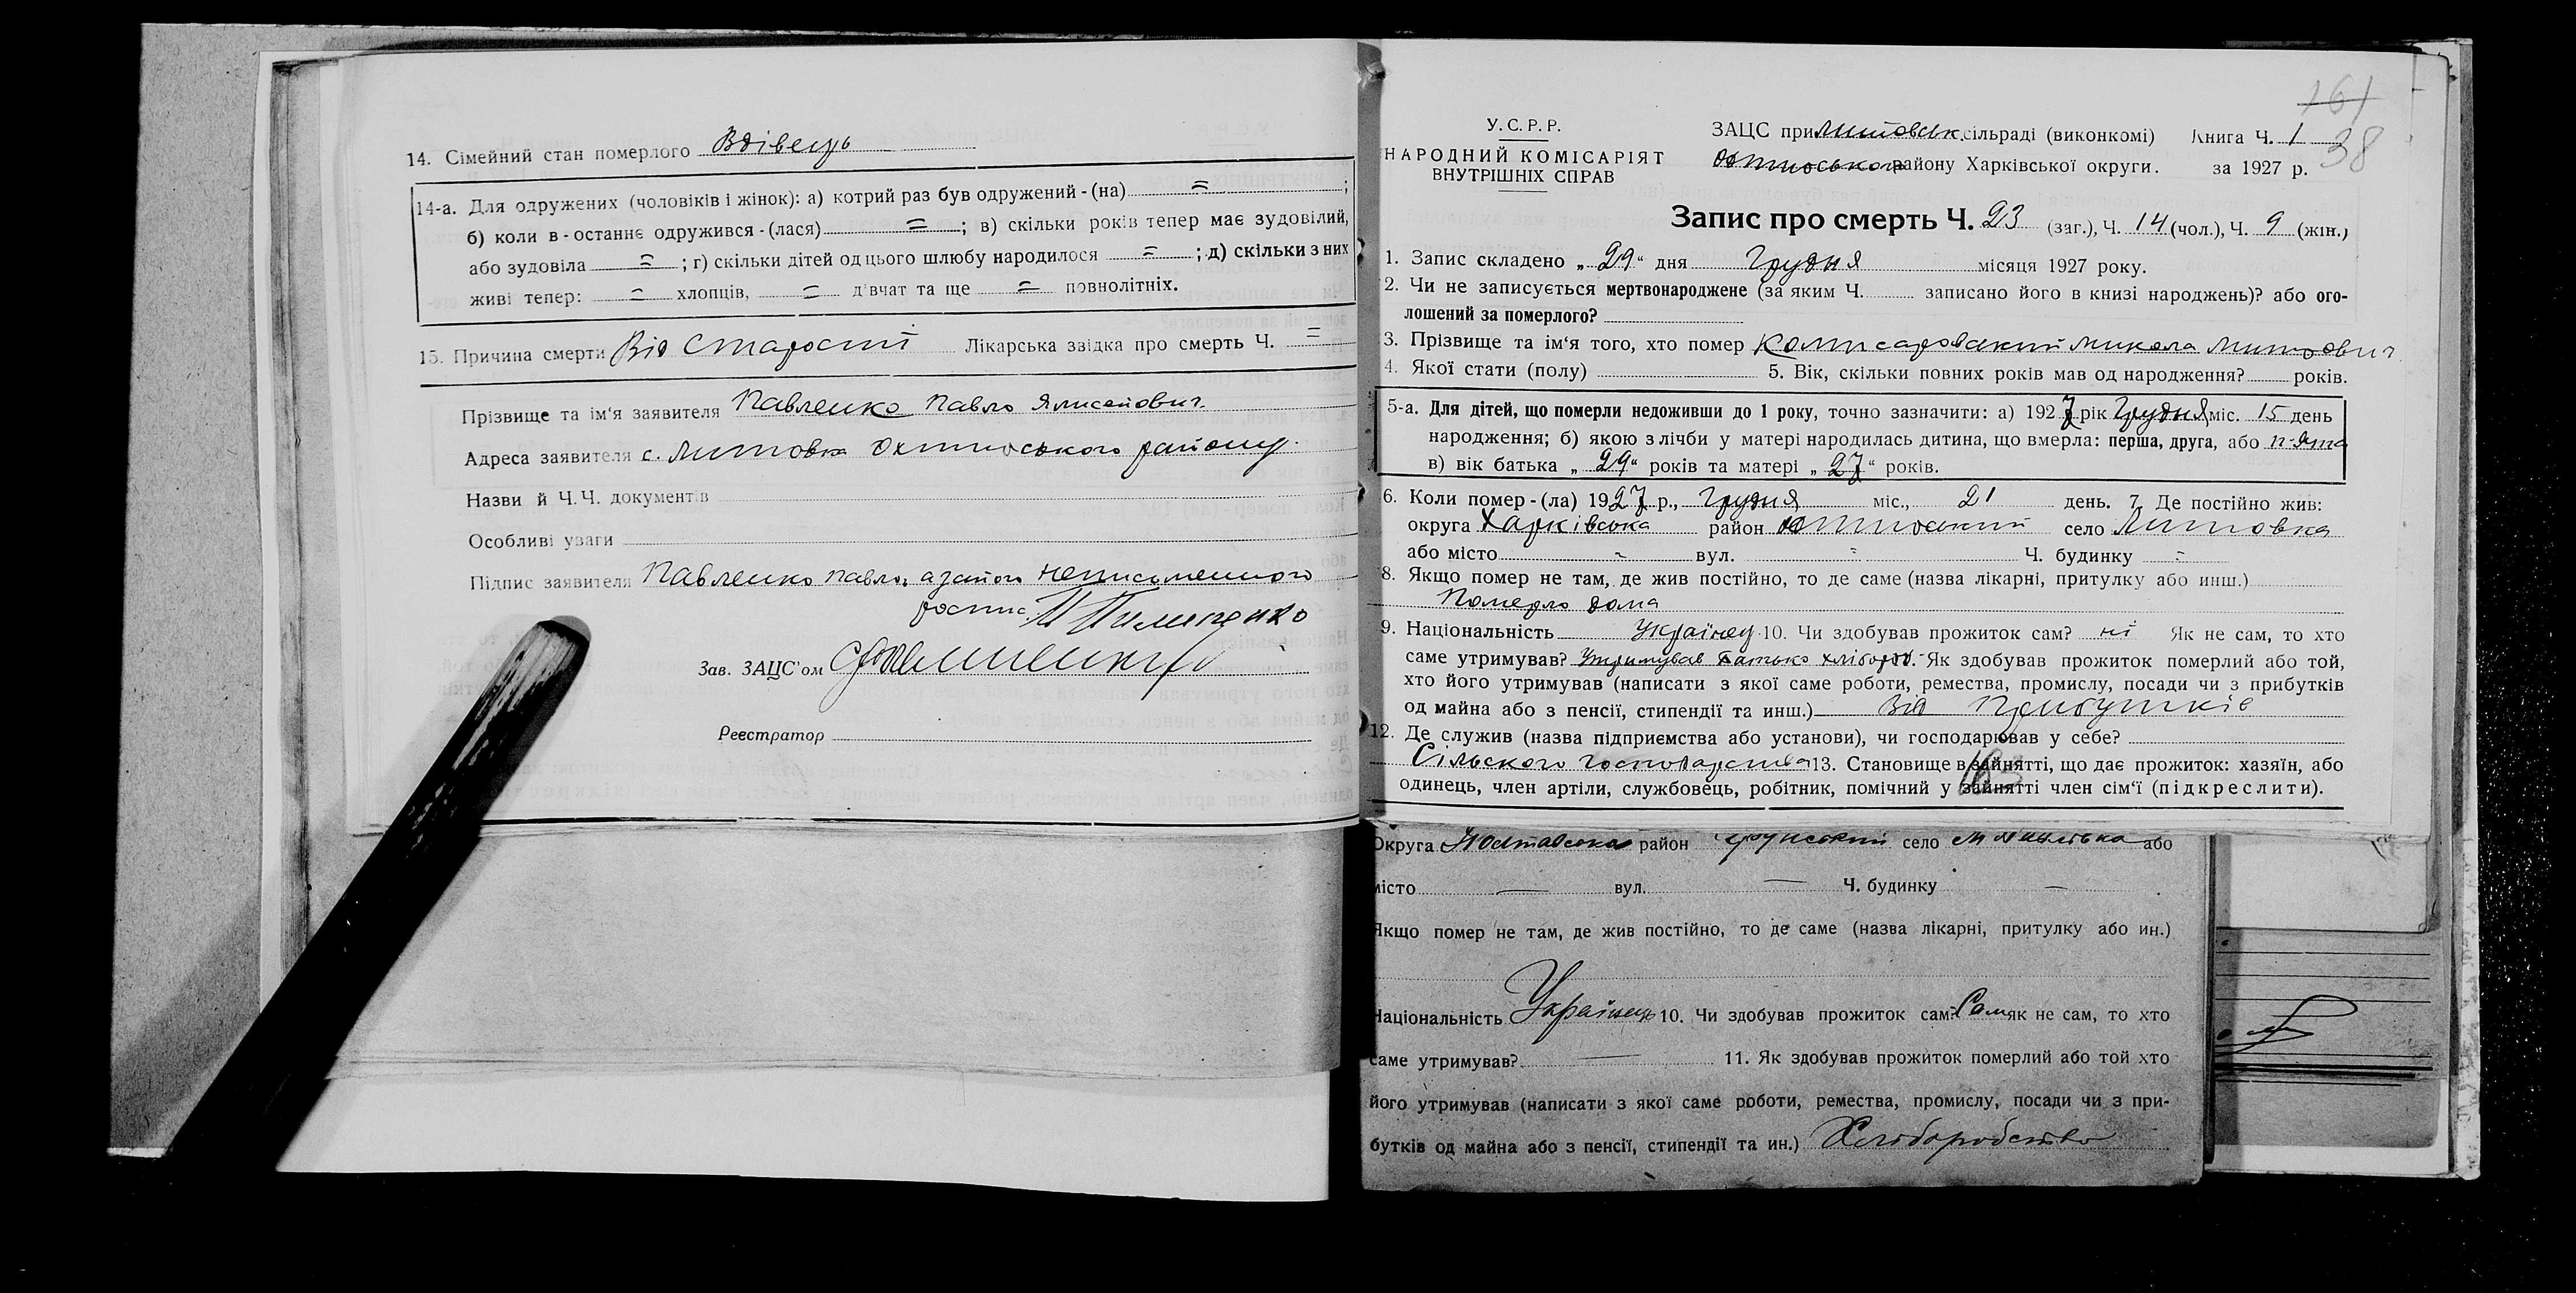 14. Сімейний стан померлого Вдівець
14-а. Для одружених (чоловіків і жінок): а) котрий раз був одружений - (на) = ;
б) коли в - останнє одружився - (лася) = ; в) скільки років тепер має зудовілий,
або зудовіла = ; г) скільки дітей од цього шлюбу народилося = ; д) скільки з них
живі тепер: = хлопців, = дівчат та ще = повнолітніх.
15. Причина смерти Від старости Лікарська звідка про смерть Ч. =
Прізвище та ім'я заявителя Павленко Павло
Адреса заявителя с. Литовка району
Назви й Ч.Ч. документів
Особливі уваги
Підпис заявителя Павленко Павло, а за його неписьменного
роспис Пилипенко
Зав. ЗАЦС'ом
Реєстратор
161
38
У.С.Р.Р.
НАРОДНИЙ КОМІСАРІЯТ
ВНУТРІШНІХ СПРАВ
ЗАЦС при Литовськ. сільраді (виконкомі) Книга Ч. 1
району Харківської округи. за 1927 р.
Запис про смерть Ч. 23 (заг.), Ч. 14 (чол.), Ч. 9 (жін.)
1. Запис складено „ 29 “ дня Грудня місяця 1927 року.
2. Чи не записується мертвонароджене (за яким Ч. записано його в книзі народжень)? або ого-
лошений за померлого?
3. Прізвище та ім'я того, хто помер Микола
4. Якої стати (полу) 5. Вік, скільки повних років мав од народження? років.
5-а. Для дітей, що померли недоживши до 1 року, точно зазначити: а) 1927 рік Грудня міс. 15 день
народження; б) якою з лічби у матері народилась дитина, що вмерла: перша, друга, або п-ята
в) вік батька „ 29 “ років та матері „ 27 “ років.
6. Коли помер - (ла) 1927 р., Грудня міс., 21 день. 7. Де постійно жив:
округа Харківська район село Литовка
або місто - вул. - Ч. будинку -
8. Якщо помер не там, де жив постійно, то де саме (назва лікарні, притулку або инш.)
Померло дома
9. Національність Українец 10. Чи здобував прожиток сам? ні Як не сам, то хто
саме утримував? Утримував батько хлібороб. Як здобував прожиток померлий або той,
хто його утримував (написати з якої саме роботи, ремества, промислу, посади чи з прибутків
од майна або з пенсії, стипендії та инш.) Від Прибутків
12. Де служив (назва підприємства або установи), чи господарював у себе?
Сільского господарства 13. Становище в зайнятті, що дає прожиток: хазяїн, або
одинець, член артіли, службовець, робітник, помічний у зайнятті член сім'ї (підкреслити).
Округа Полтавська район село або
місто — вул. — Ч. будинку —
Якщо помер не там, де жив постійно, то де саме (назва лікарні, притулку або ин.)
Національність Українець 10. Чи здобував прожиток сам? Сам як не сам, то хто
саме утримував? — 11. Як здобував прожиток померлий або той хто
його утримував (написати з якої саме роботи, ремества, промислу, посади чи з при-
бутків од майна або з пенсії, стипендії та ин.) Хліборобство